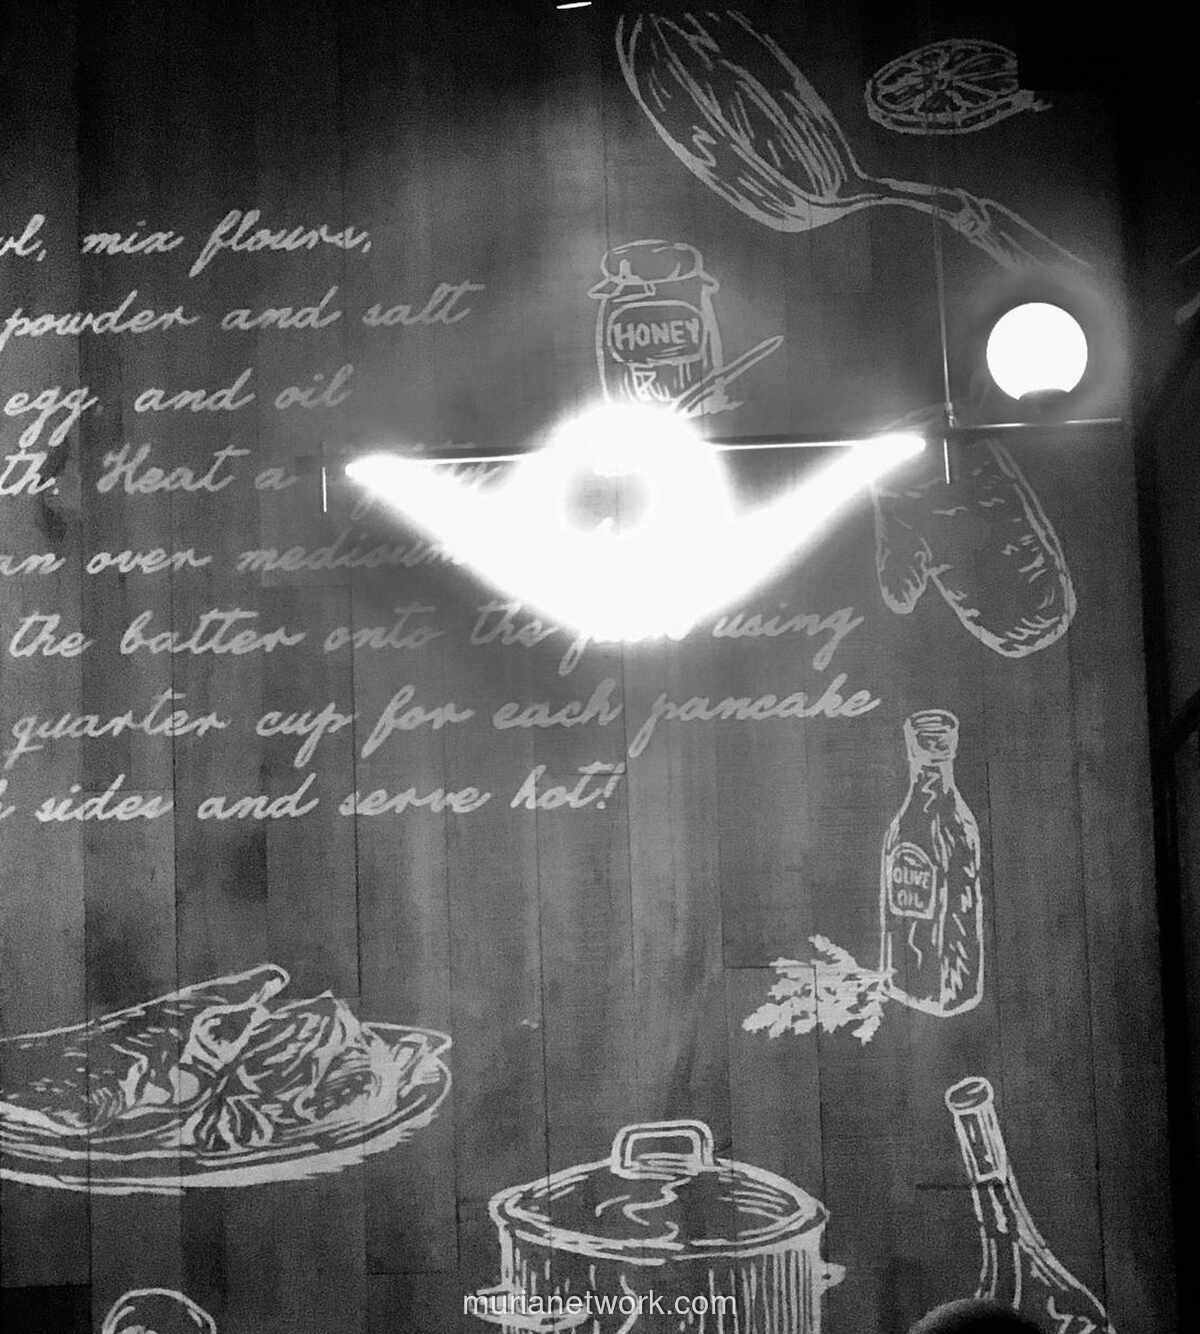 mix flours,
powder and salt
HONEY
egg, and oil
Heat a
over medium
the batter onto the using
quarter cup for each pancake
sides and serve hot!
OLIVE
OIL
murianetwork.com